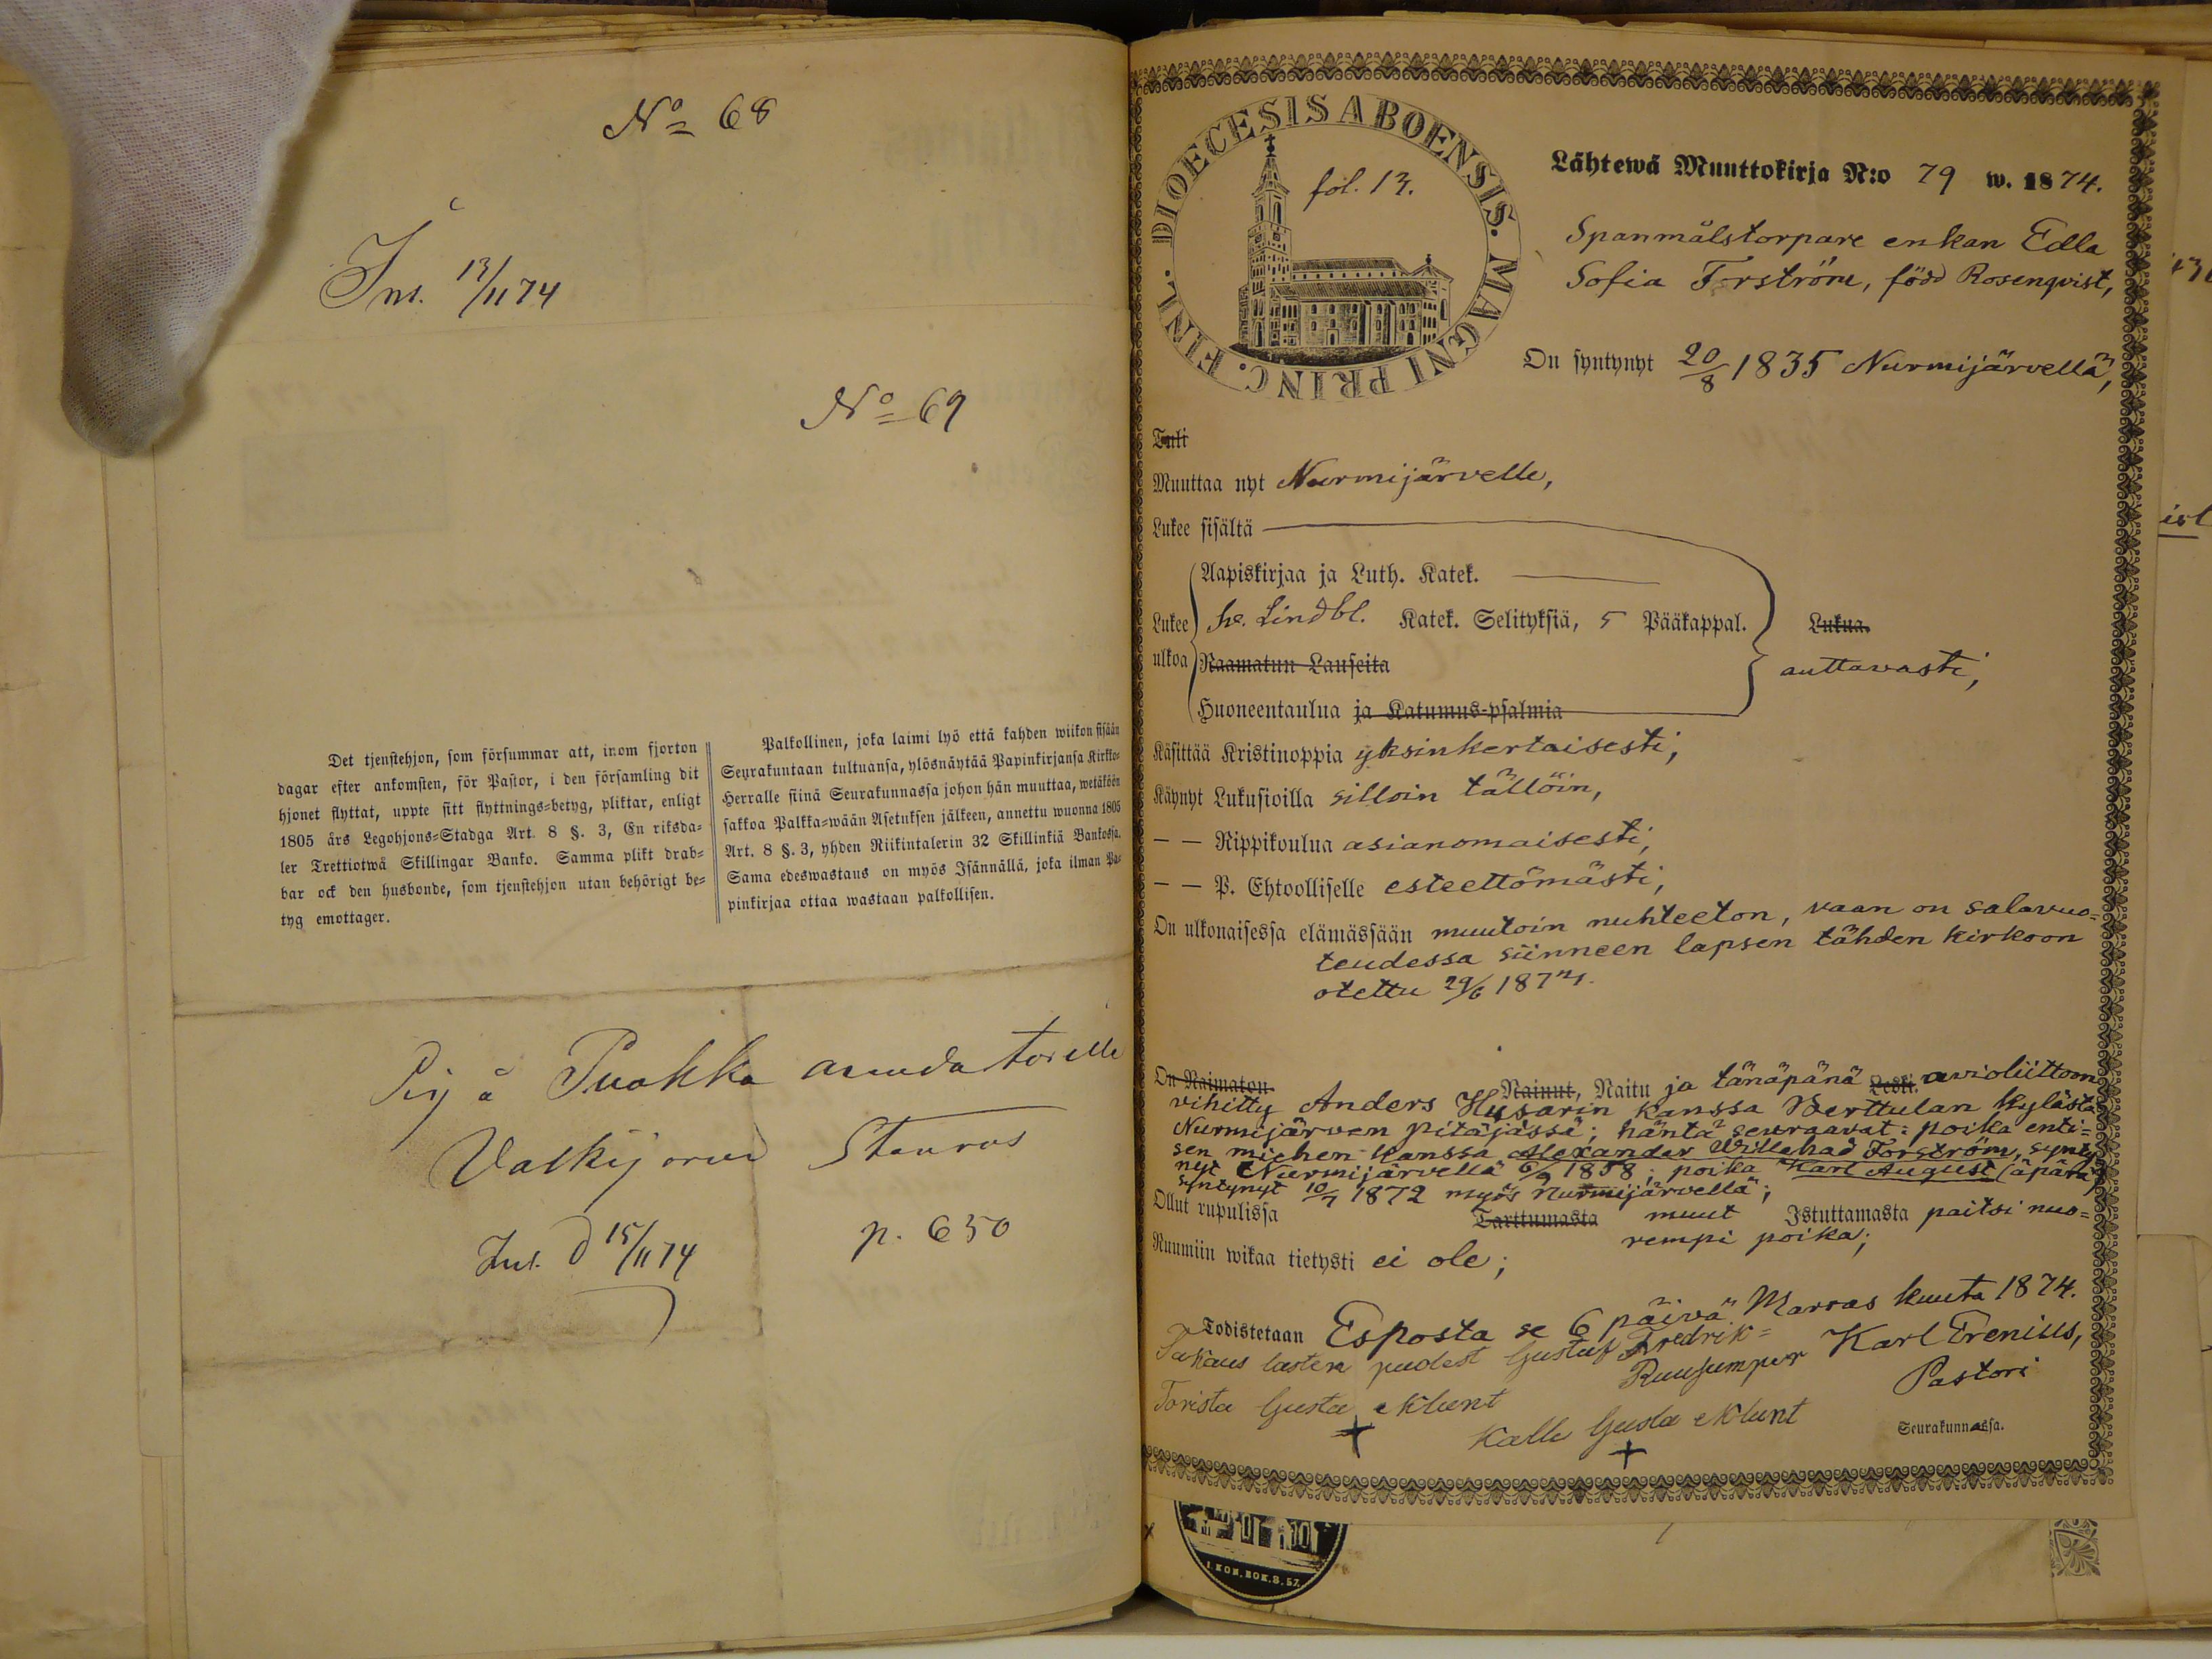 No 68
Ins. 13/11 74
No 69
Det tjenstehjon, som försummar att, inom fjorton
dagar efter ankomsten, för Pastor, i den församling dit
hjonet flyttat, uppte sitt flyttnings=betyg, pliktar, enligt
1805 års Legohjons=Stadga Art. 8 §. 3, En riksda=
ler Trettiotwå Skillingar Banko. Samma plikt drab=
bar ock den husbonde, som tjenstehjon utan behörigt be=
tyg emottager.
Palkollinen, joka laimi lyö että kahden wiikon sisään
Seurakuntaan tultuansa, ylösnäytää Papinkirjansa Kirkko=
Herralle siinä Seurakunnassa johon hän muuttaa, wetäköön
sakkoa Palkka=wään Asetuksen jälkeen, annettu wuonna 1805
Art. 8 §. 3, yhden Riikintalerin 32 Skillinkiä Bankossa.
Sama edeswastaus on myös Isännällä, joka ilman Pa=
pinkirjaa ottaa wastaan palkollisen.
Pig å Puokka
Ins. d 15/11 74
p. 650
DIOECESIS ABOENSIS. MAGNI PRINC. FINL.
fol. 13.
Lähtewä Muuttokirja N:o 79 w. 1874.
Spanmålstorpare enkan Edla
Sofia Forström, född Rosenqvist,
On syntynyt 20/8 1835 Nurmijärvellä,
Tuli
Muuttaa nyt Nurmijärvelle,
Lukee sisältä
Aapiskirjaa ja Luth. Katek.
Lukee
ulkoa
he. Lindbl. Katek. Selityksiä, 5 Pääkappal.
Lukua.
Raamatun Lauseita
auttavasti,
Huoneentaulua ja Katumus-psalmia
Käsittää Kristinoppia yksinkertaisesti,
Käynyt Lukusioilla silloin tällöin,
— — Rippikoulua asianomaisesti,
— — P. Ehtoolliselle esteettömästi,
On ulkonaisessa elämässään muutoin nuhteeton, vaan on salavuo=
teudessa siinneen lapsen tähden kirkoon
otettu 29/6 1874.
On Naimaton. Nainut, Naitu ja tänäpänä Leski. avioliittoon
vihitty Anders Husarin kanssa Werttulan kylästä
Nurmijärven pitäjässä; häntä seuraavat: poika enti=
sen miehen kanssa Alexander Willehad Forström, synty
nyt Nurmijärvellä 6/9 1858; poika Karl August (äpärä)
syntynyt 10/7 1872 myös Nurmijärvellä;
Ollut rupulissa Tarttumasta muut Istuttamasta paitsi nuo=
rempi poika;
Ruumiin wikaa tietysti ei ole;
Todistetaan Esposta se 6 päivä Marras kuuta 1874.
Karl Frenius,
Pastori
Gustaf Fredrik=
Torista Gusta Klunt
Kalle Gusta Klunt
Seurakunnassa.
I. KON. BOK. 8. 57.